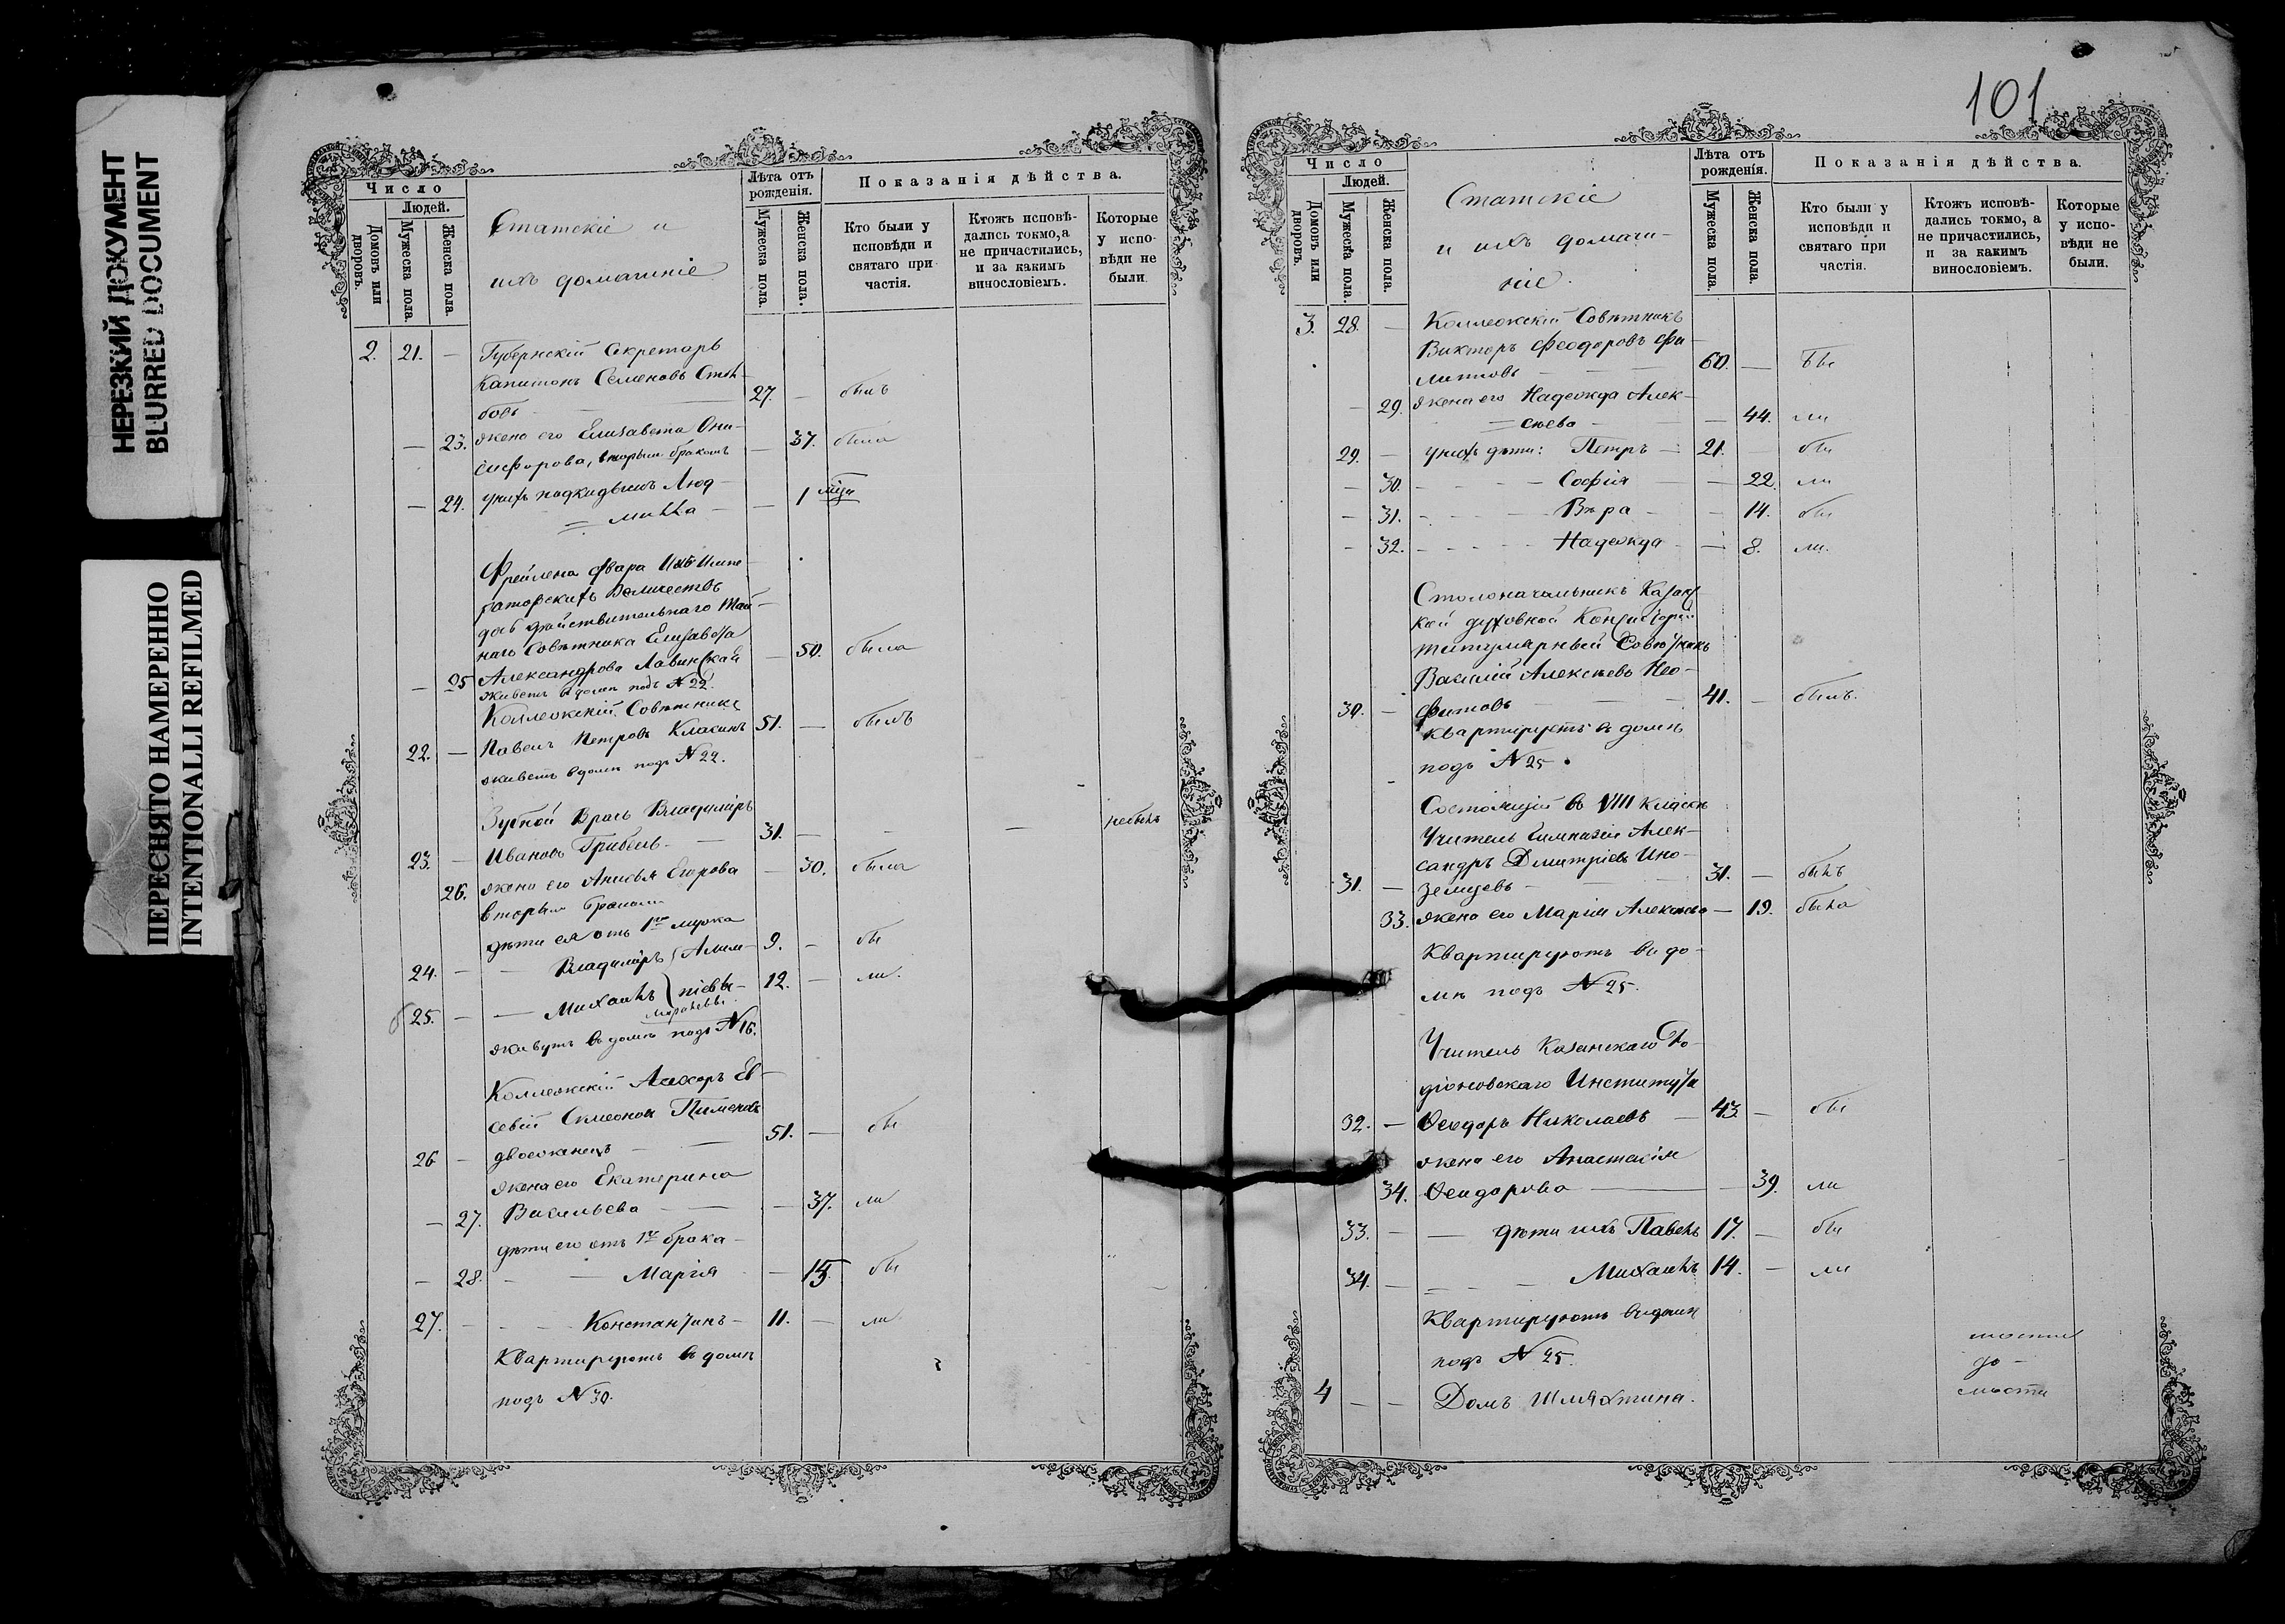 НЕРЕЗКИЙ ДОКУМЕНТ
BLURRED DOCUMENT
ПЕРЕСНЯТО НАМЕРЕННО
INTENTIONALLI REFILMED
Число
Людей.
Домовъ или дворовъ.
Мужеска пола.
Женска пола.
Статскіе и
ихъ домашніе
Лѣта отъ рожденія.
Мужеска пола.
Женска пола.
Показанія дѣйства.
Кто были у исповѣди и святаго причастія.
Ктожъ исповѣдались токмо, а не причастились, и за какимъ винословіемъ.
Которые у исповѣди не были.
2. 21. — Губернскій Секретарь
Капитонъ Семеновъ Стол-
бовъ — 27. — былъ
— 23. жена его Елизавета Они-
сифорова, вторымъ бракомъ — 37. была
— 24. у нихъ подкидышъ Люд-
= милла — — 1 мѣся
Фрейлена Двара Ихъ Импе-
раторскихъ Величествъ
дочь Дѣйствительнаго Тай-
наго Совѣтника Елизавета
— 25 Александрова Лавинская — 50. была
живетъ въ домѣ подъ № 22.
Коллежскій Совѣтникъ
22. — Павелъ Петровъ Класинъ 51. — былъ
живетъ в домѣ подъ № 22.
Зубной Врачъ Владиміръ
23. — Ивановъ Грибель — 31. — — — небылъ
26. жена его Анисья Егорова — 30. была
вторым браком
дѣти ея отъ 1го мужа
24. — — Владиміръ 9. — бы
б 25. — — Михаилъ 12. — ли.
живутъ въ домѣ подъ № 16.
Коллежскій Ассесоръ Ев-
севій Симеонов Пименовъ
26 — двоеженецъ — 51. — бы
жена его Екатерина
— 27. Васильева — — — 37. ли
дѣти его отъ 1го брака —
— 28. — — Марія — 15 бы
27. — — — Константинъ — 11. — ли
Квартируютъ въ домѣ
подъ № 30.
101
Число
Людей.
Домовъ или дворовъ.
Мужеска пола.
Женска пола.
Статскіе
и ихъ домаш-
ніе.
Лѣта отъ рожденія.
Мужеска пола.
Женска пола.
Показанія дѣйства.
Кто были у исповѣди и святаго причастія.
Ктожъ исповѣдались токмо, а не причастились, и за какимъ винословіемъ.
Которые у исповѣди не были.
3. 28. — Коллежскій Совѣтникъ
Викторъ Феодоровъ Фи-
липповъ — — 60. — бы
— 29. жена его Надежда Алек-
= сѣева — — 44. ли
29. — у нихъ дѣти: Петръ — 21. — бы
— 30. — — — Софія — — 22. ли
— 31. — — — Вѣра — — 14. бы
— 32. — — — Надежда — 8. ли.
Столоначальникъ Казанс
кой духовной Консисторіи
титулярный Совѣтникъ
Василій Алексѣевъ Нео-
30. — фитовъ — — 41. — былъ.
квартируетъ въ домѣ
подъ № 25.
Состоящій въ VIII классѣ
Учитель Гимназіи Алек-
сандръ Дмитріевъ Ино-
31. — земцевъ — 31. — былъ
33. жена его Марія Алексѣева — 19. была
Квартируютъ въ до-
мѣ подъ № 25.
Учитель Казанскаго Ро-
діоновскаго Института
32. — Ѳеодоръ Николаевъ — 43 — бы
жена его Анастасія
34. Ѳеодорова — — 39. ли
33. — — дѣти ихъ Павелъ 17. — бы
34. — — — Михаилъ 14. — ли
Квартируютъ въ домѣ
подъ № 25.
4 — — Домъ Шляхтина.